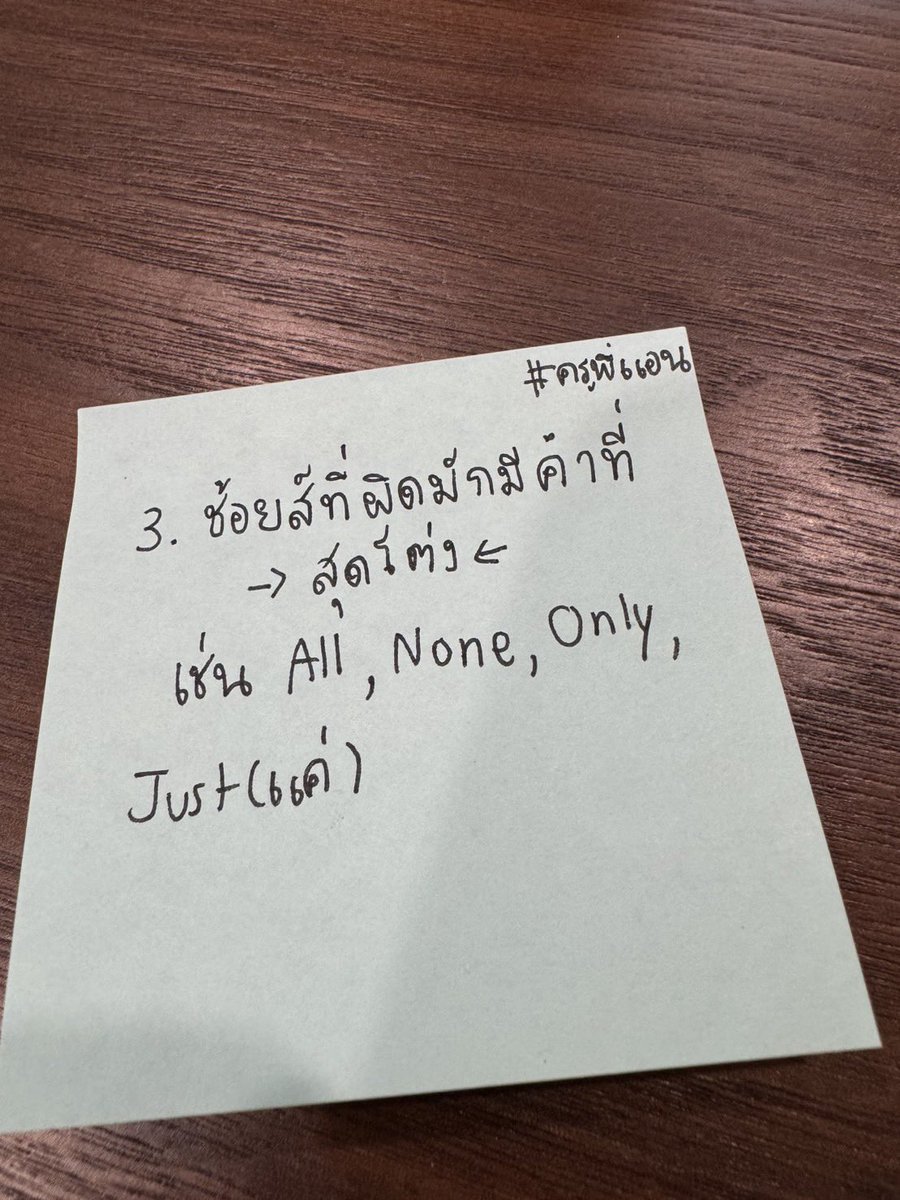 #ครูพี่แอน
3. ช้อยส์ที่ผิดมักมีคำที่
→ สุดโต่ง ←
เช่น All, None, Only,
Just(แค่)